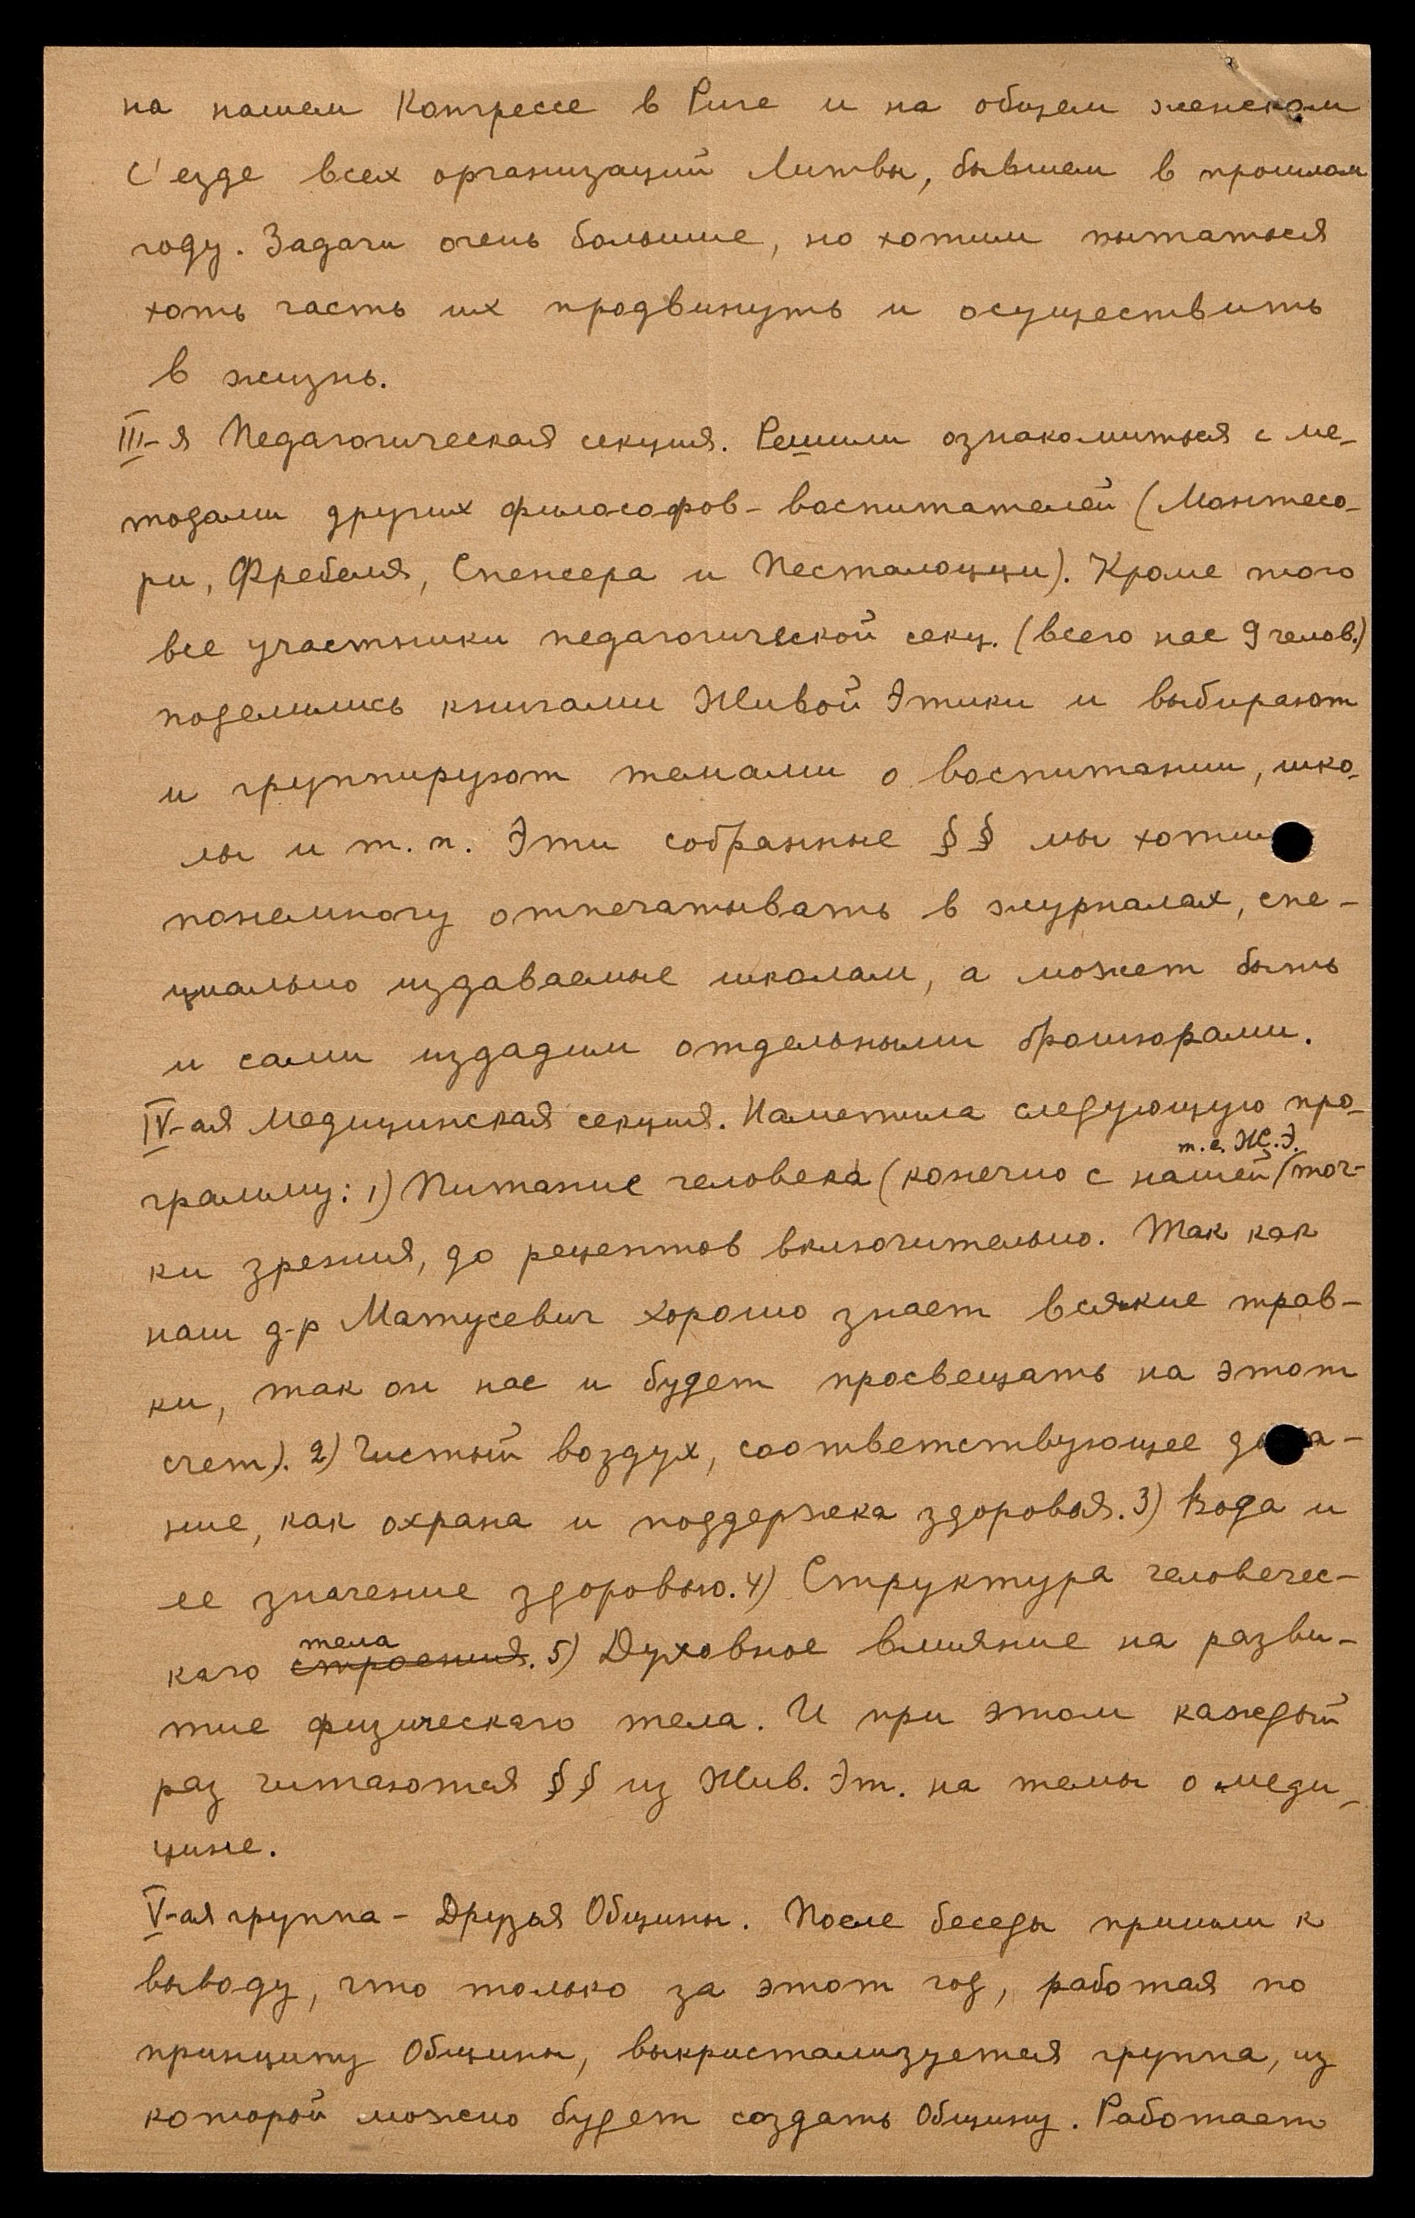 на нашем Конгрессе в Риге и на общем женском
с'езде всех организаций Литвы, бывшем в прошлом
году. Задачи очень большие, но хотим пытаться
хоть часть их продвинуть и осуществить
в жизнь.
III-я Педагогическая секция. Решили ознакомиться с ме-
тодами других философов-воспитателей (Монтесо-
ри, Фребеля, Спенсера и Песталоцци). Кроме того
все участники педагогической секц. (всего нас 9 челов.)
поделились книгами Живой Этики и выбирают
и группируют темами о воспитании, шко-
лы и т.п. Эти собранные §§ мы хотим
понемногу отпечатывать в журналах, спе-
циально издаваемые школам, а может быть
и сами издадим отдельными брошюрами.
IV-ая Медицинская секция. Наметила следующую про-
т.е. Ж.Э.
грамму: 1) Питание человека (конечно с нашей точ-
ки зрения, до рецептов включительно. Так как
наш д-р Матусевич хорошо знает всякие трав-
ки, так он нас и будет просвещать на этот
счет). 2) Чистый воздух, соответствующее дыха-
ние, как охрана и поддержка здоровья. 3) Вода и
ее значение здоровью. 4) Структура человечес-
тела
каго строения. 5) Духовное влияние на разви-
тие физическаго тела. И при этом каждый
раз читаются §§ из Жив. Эт. на темы о меди-
цине.
V-ая группа - Друзья Общины. После беседы пришли к
выводу, что только за этот год, работая по
принципу Общины, выкристализуется группа, из
которой можно будет создать Общину. Работает